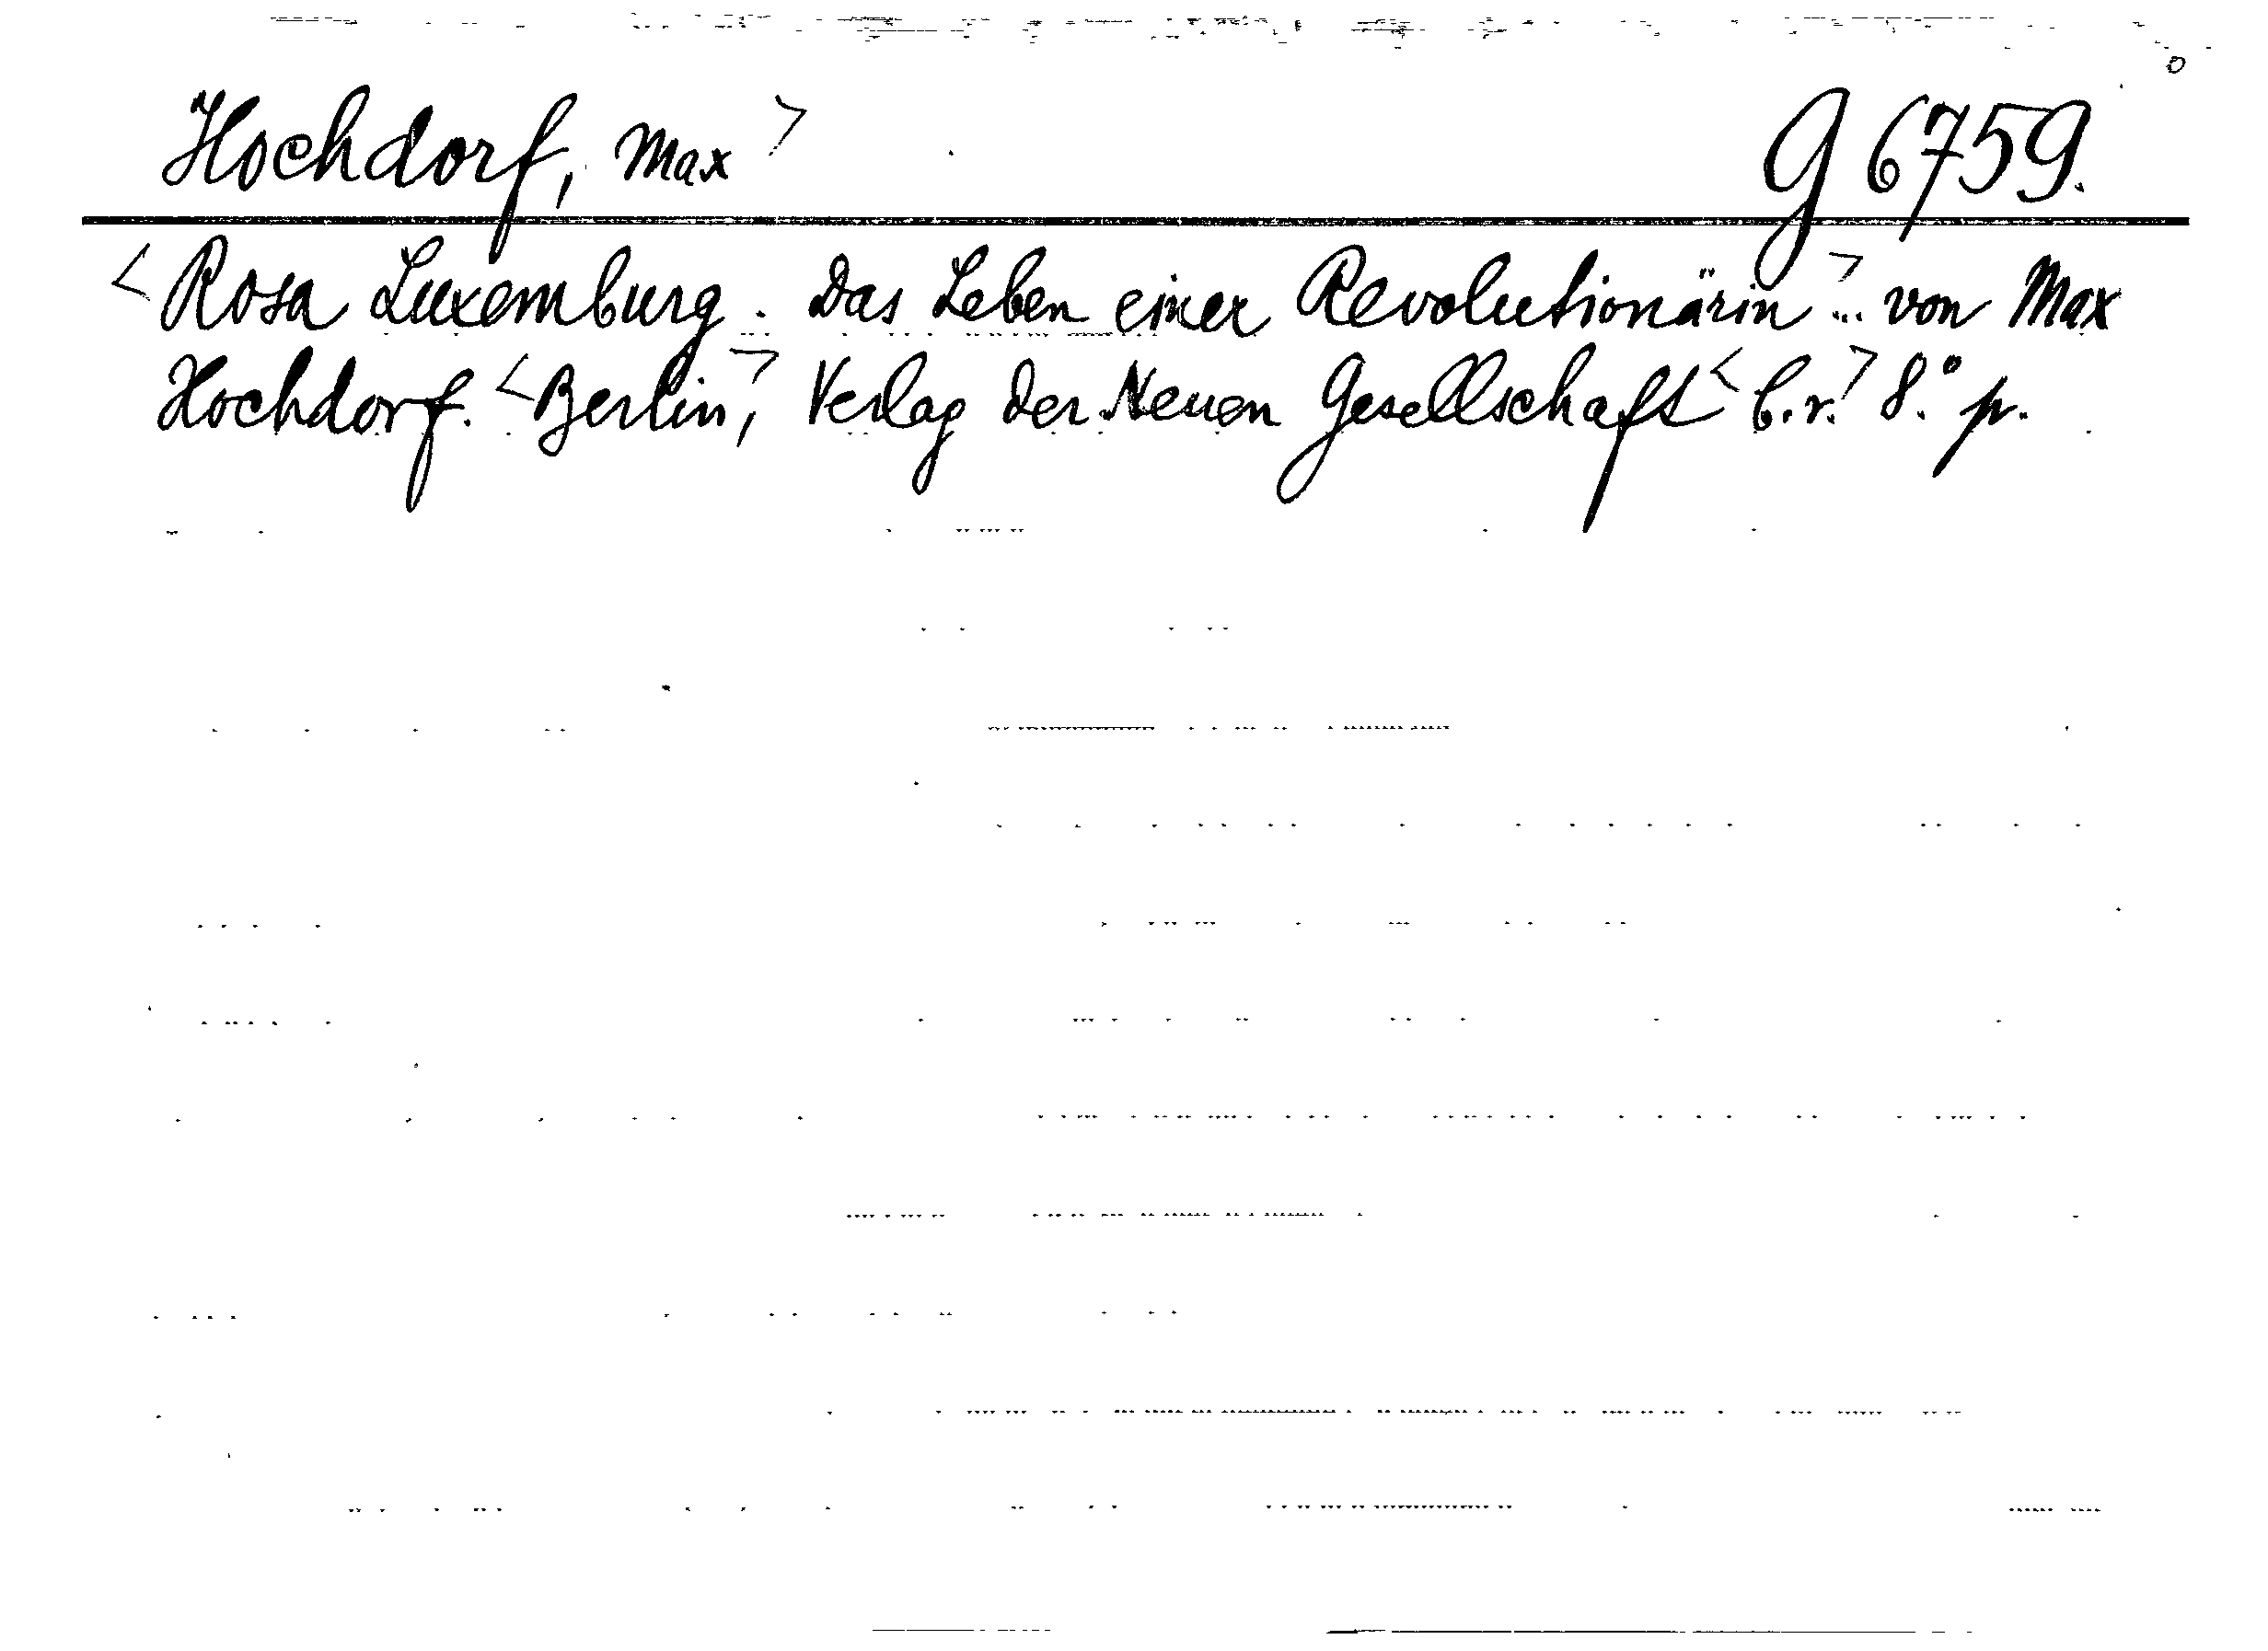 Hochdorf, Max> G 6759.
<Rosa Luxemburg. Das Leben einer Revolutionärin>... von Max
Hochdorf. <Berlin,> Verlag der Neuen Gesellschaft <b.r.> 8.° p.